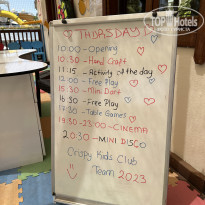 TOP Hotels
THURSDAY
10:00 - Opening
10:30 - Hand Craft
11:15 - Activity of the day
12:00 - Free Play
15:30 - Mini Dart
16:30 - Free Play
17:30 - Table Games
19:30 - 23:00 - CINEMA
20:30 - MINI DISCO
Crispy Kids Club
Team 2023